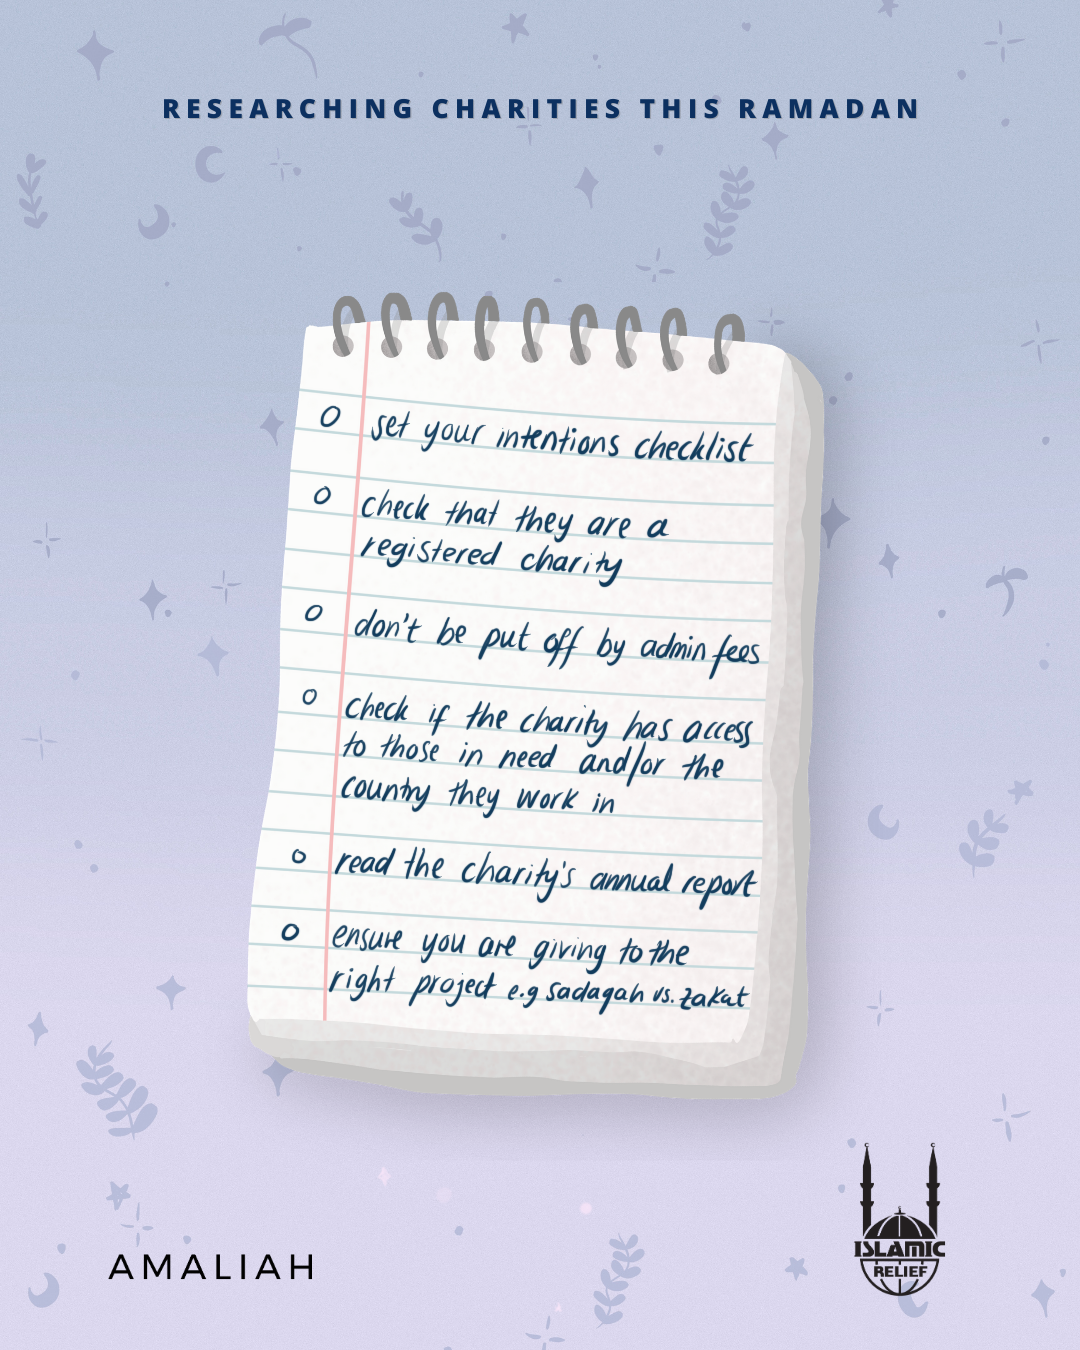 RESEARCHING CHARITIES THIS RAMADAN
o set your intentions checklist
o check that they are a
registered charity
o don't be put off by admin fees
o check if the charity has access
to those in need and/or the
country they work in
o read the charity's annual report
o ensure you are giving to the
right project e.g sadaqah vs. zakat
AMALIAH
ISLAMIC
RELIEF